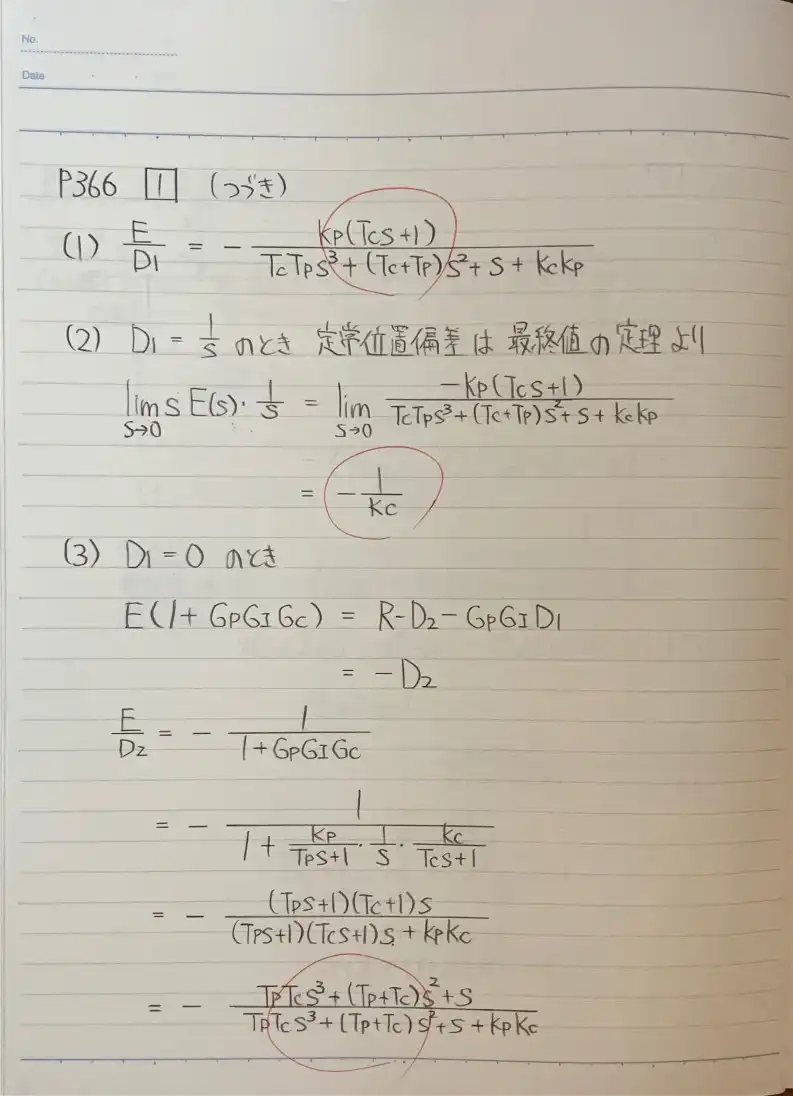 No.
Date
P366 1 (つづき)
(1) E/D1 = - Kp(Tcs+1)/(TcTps³+(Tc+Tp)s²+s+KcKp)
(2) D1 = 1/s のとき 定常位置偏差は 最終値の定理より
lim s→0 s E(s)・1/s = lim s→0 -Kp(Tcs+1)/(TcTps³+(Tc+Tp)s²+s+KcKp)
= - 1/Kc
(3) D1 = 0 のとき
E(1+GPGIGC) = R-D2-GPGID1
= -D2
E/D2 = - 1/(1+GPGIGC)
= - 1/(1+Kp/(Tps+1)・1/s・Kc/(Tcs+1))
= - (Tps+1)(Tc+1)s/((Tps+1)(Tcs+1)s+KpKc)
= - (TpTcs³+(Tp+Tc)s²+s)/(TpTcs³+(Tp+Tc)s²+s+KpKc)